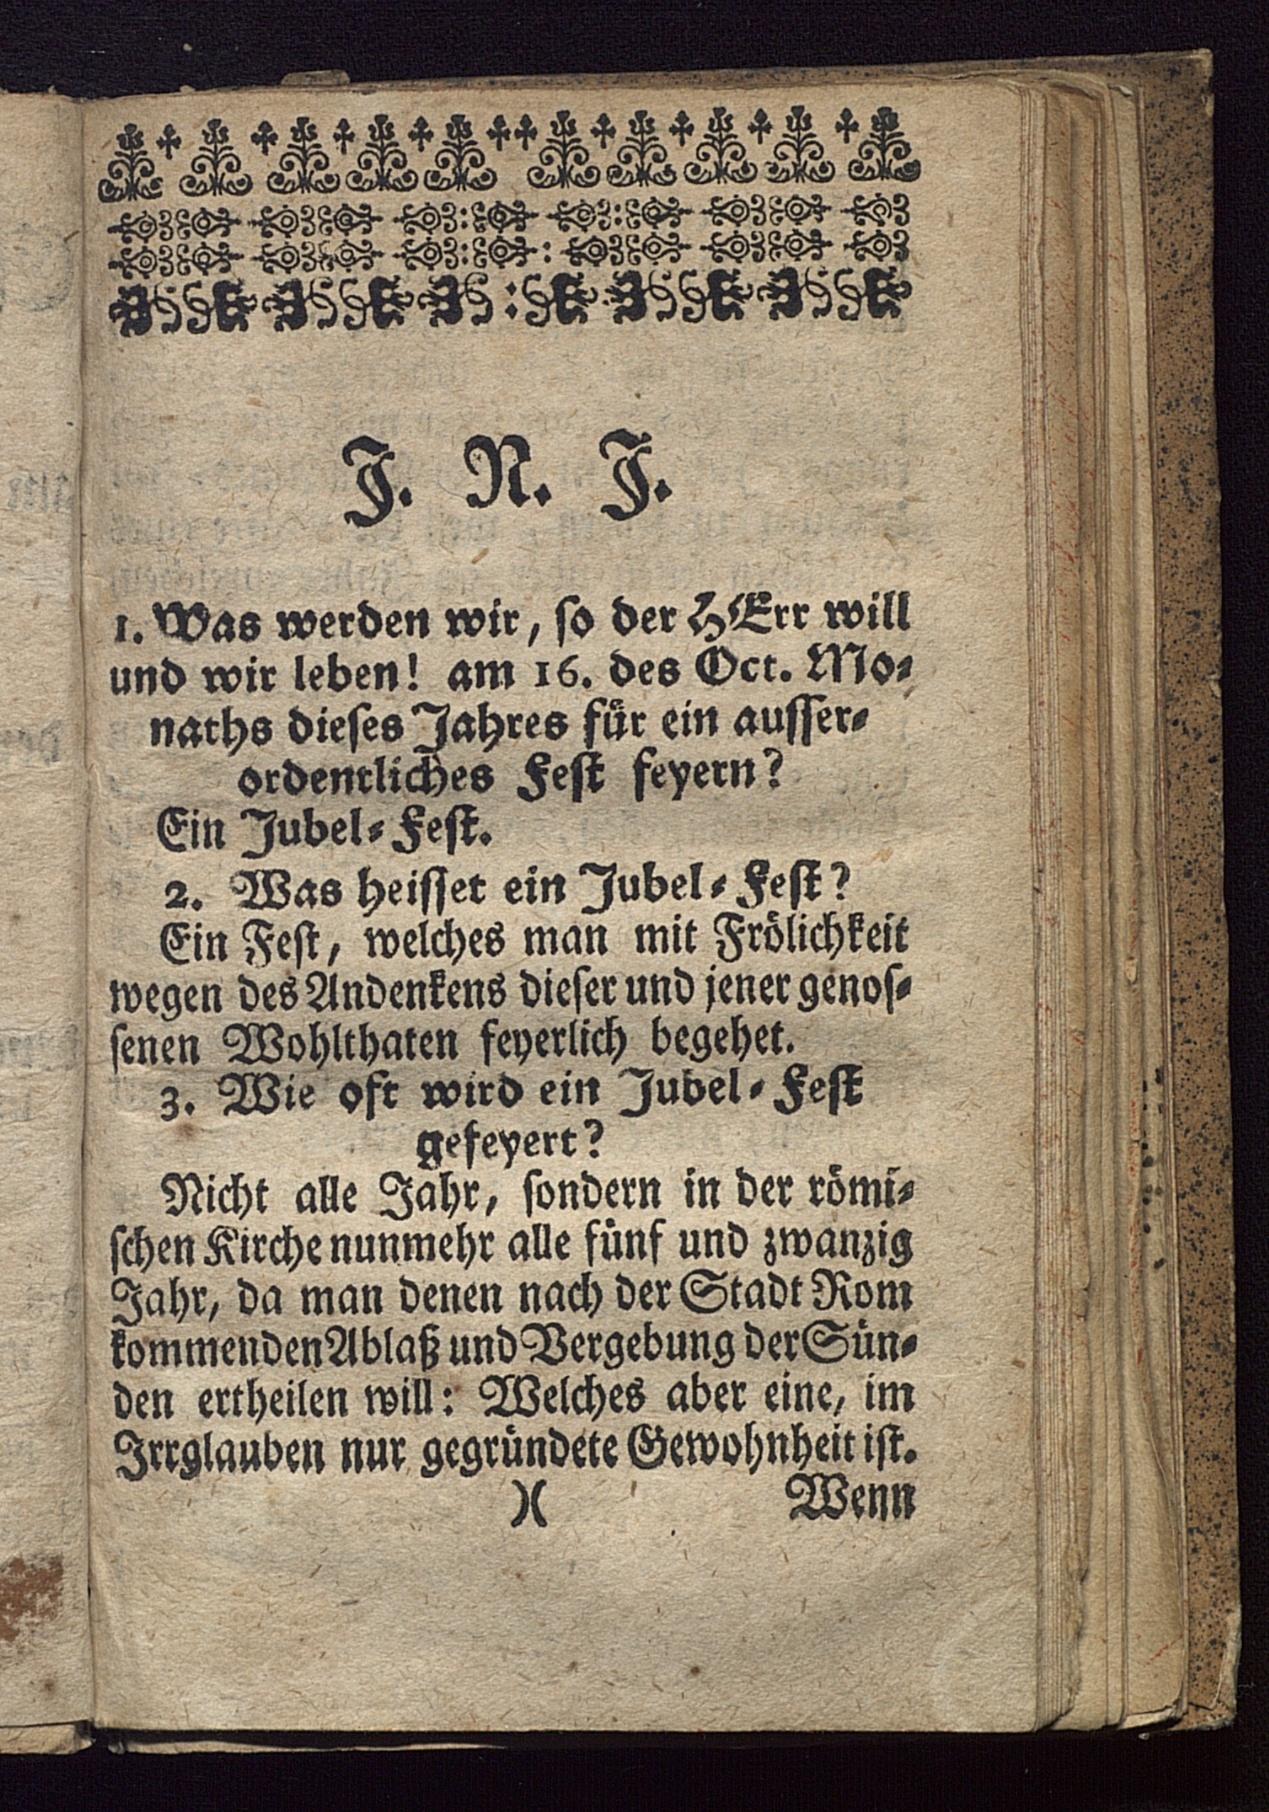 J. N. J.
1. Was werden wir, so der HErr will
und wir leben! am 16. des Oct. Mo-
naths dieses Jahres für ein ausser-
ordentliches Fest feyern?
Ein Jubel-Fest.
2. Was heisset ein Jubel-Fest?
Ein Fest, welches man mit Frölichkeit
wegen des Andenkens dieser und jener genos-
senen Wohlthaten feyerlich begehet.
3. Wie oft wird ein Jubel-Fest
gefeyert?
Nicht alle Jahr, sondern in der römi-
schen Kirche nunmehr alle fünf und zwanzig
Jahr, da man denen nach der Stadt Rom
kommenden Ablaß und Vergebung der Sün-
den ertheilen will: Welches aber eine, im
Irrglauben nur gegründete Gewohnheit ist.
)( Wenn